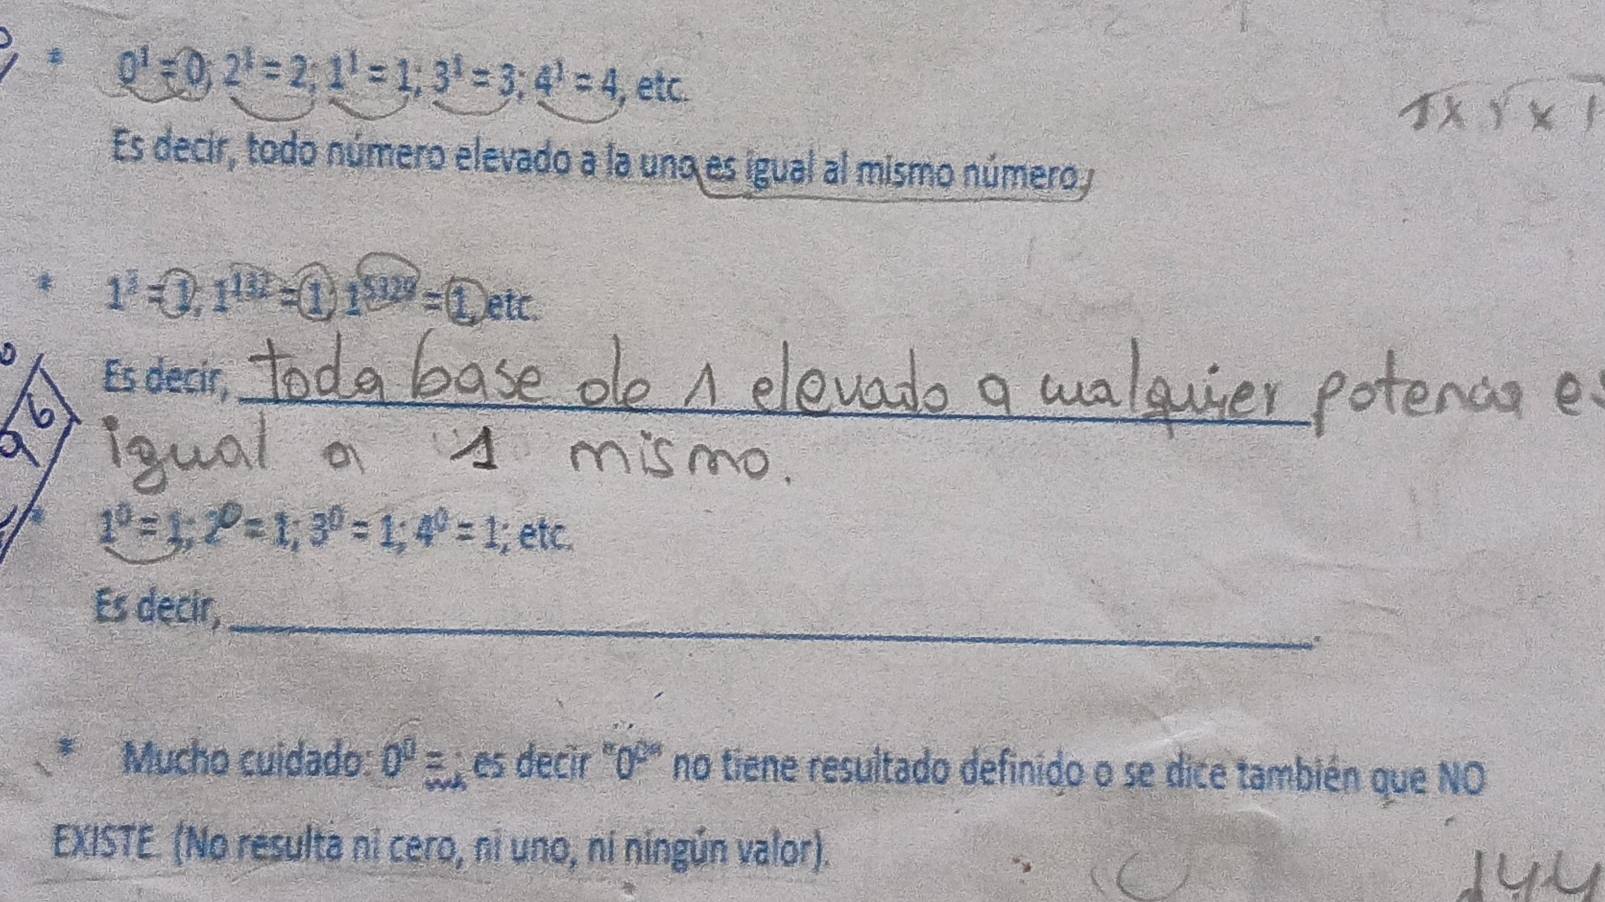 * 0¹ = 0; 2¹ = 2; 1¹ = 1; 3¹ = 3; 4¹ = 4, etc.
1 x 1 x 1
Es decir, todo número elevado a la uno es igual al mismo número.
* 1³ = 1; 1¹³² = 1; 1⁵³²⁹ = 1, etc.
Es decir, toda base de 1 elevado a cualquier potencia es
igual a 1 mismo.
* 1⁰ = 1; 2⁰ = 1; 3⁰ = 1; 4⁰ = 1; etc.
Es decir, ______.
* Mucho cuidado: 0⁰ = ; es decir "0⁰" no tiene resultado definido o se dice también que NO
EXISTE. (No resulta ni cero, ni uno, ni ningún valor).